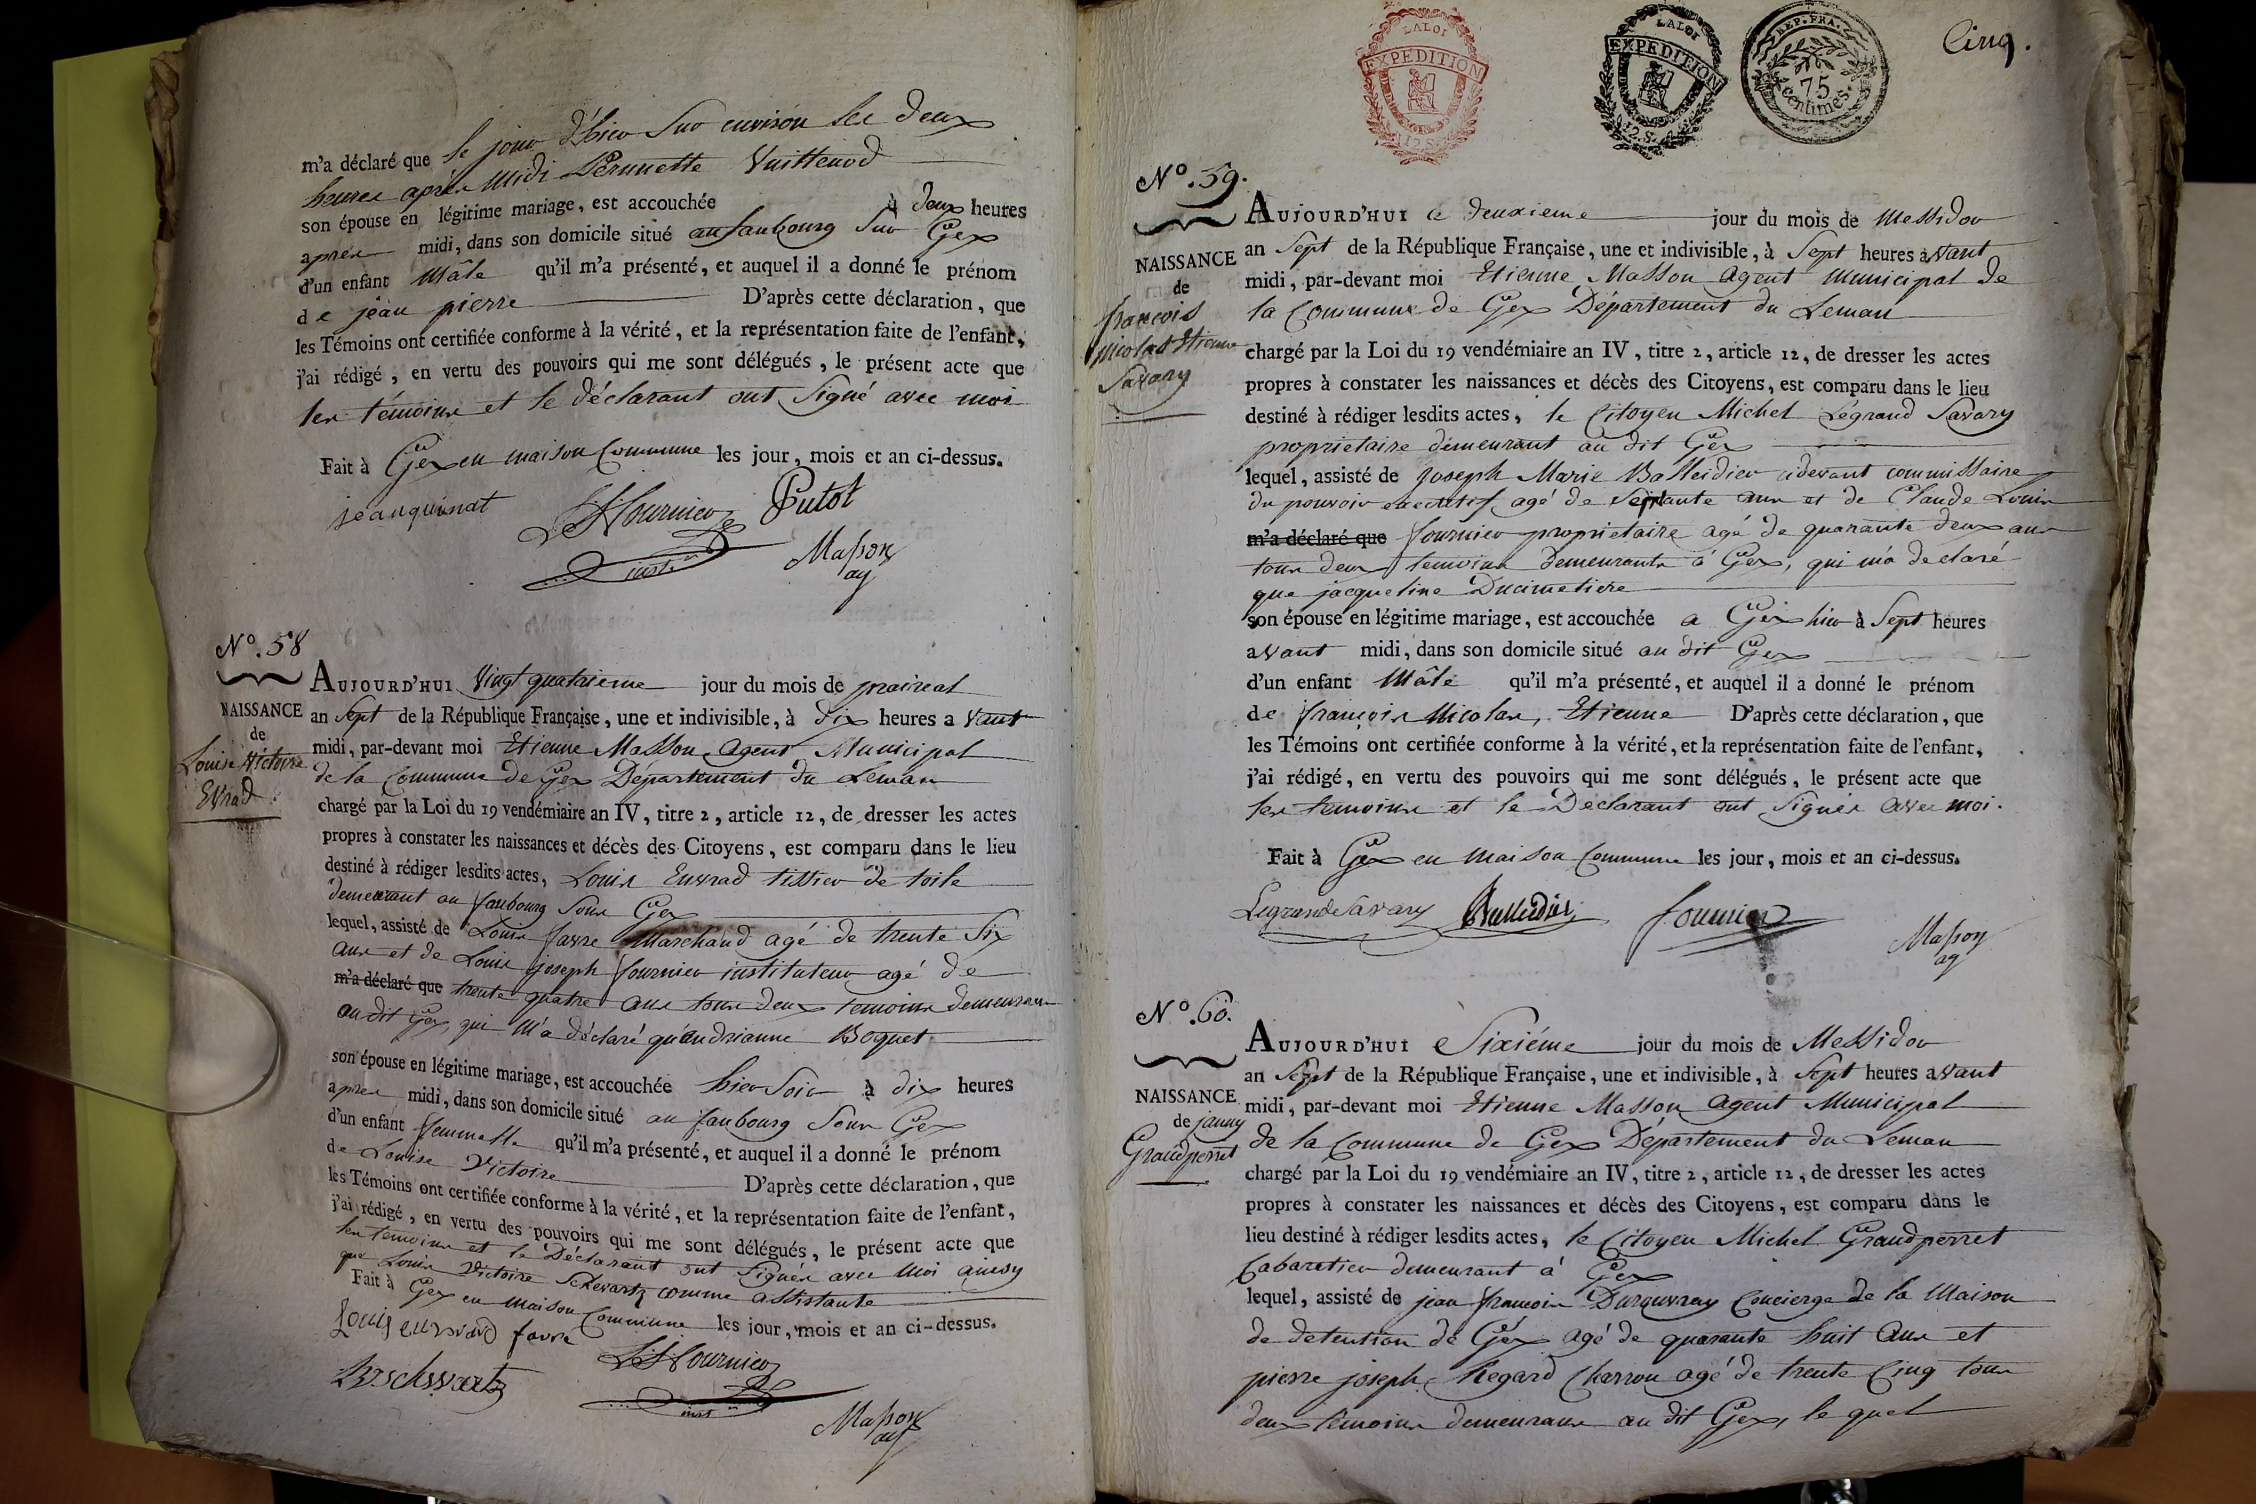 m'a déclaré que le jour d'hier sur environ les deux
heures après midi Pernnette Vuittenod
son épouse en légitime mariage, est accouchée à deux heures
après midi, dans son domicile situé au faubourg sur Gex
d'un enfant Mâle qu'il m'a présenté, et auquel il a donné le prénom
de jean pierre D'après cette déclaration, que
les Témoins ont certifiée conforme à la vérité, et la représentation faite de l'enfant,
j'ai rédigé, en vertu des pouvoirs qui me sont délégués, le présent acte que
les témoins et le déclarant ont signé avec moi
Fait à Gex en maison Commune les jour, mois et an ci-dessus.
jeanquinat LJ Fournier Putot
inst. Masson
ag
N° 58
NAISSANCE
de
Louise Victoire
Evrad
AUJOURD'HUI Vingt quatrieme jour du mois de prairial
an Sept de la République Française, une et indivisible, à dix heures avant
midi, par-devant moi Etienne Masson Agent Municipal
de la Commune de Gex Département du Leman
chargé par la Loi du 19 vendémiaire an IV, titre 2, article 12, de dresser les actes
propres à constater les naissances et décès des Citoyens, est comparu dans le lieu
destiné à rédiger lesdits actes, Louis Euvrad tissier de toile
demeurant au faubourg sous Gex
lequel, assisté de Louis favre Marchand agé de trente Six
ans et de Louis joseph fournier instituteur agé de
m'a déclaré que trente quatre ans tous deux temoins demeurans
au dit Gex, qui m'a déclaré qu'andrianne Boquet
son épouse en légitime mariage, est accouchée hier Soir à dix heures
apres midi, dans son domicile situé au faubourg Sous Gex
d'un enfant femmelle qu'il m'a présenté, et auquel il a donné le prénom
de Louise Victoire D'après cette déclaration, que
les Témoins ont certifiée conforme à la vérité, et la représentation faite de l'enfant,
j'ai rédigé, en vertu des pouvoirs qui me sont délégués, le présent acte que
les temoins et le Déclarant ont signés avec moi ainsy
que Louise Victoire Schwartz comme assistante
Fait à Gex en maison Commune les jour, mois et an ci-dessus.
Louis eurvard favre
Schwartz LJ Fournier
inst Masson
ag
LA LOI
EXPEDITION
12.S.
LA LOI
EXPEDITION
12.S.
REP. FRA.
75
centimes
Cinq.
N° 59.
NAISSANCE
de
francois
Nicolas Etienne
Savary
AUJOURD'HUI le deuxieme jour du mois de Messidor
an Sept de la République Française, une et indivisible, à Sept heures avant
midi, par-devant moi Etienne Masson Agent Municipal de
la Commune de Gex Département du Leman
chargé par la Loi du 19 vendémiaire an IV, titre 2, article 12, de dresser les actes
propres à constater les naissances et décès des Citoyens, est comparu dans le lieu
destiné à rédiger lesdits actes, le Citoyen Michel Legrand Savary
proprietaire demeurant au dit Gex
lequel, assisté de Joseph Marie Balleidier cidevant commissaire
du pouvoir executif agé de Septante ans et de Claude Louis
m'a déclaré que fournier proprietaire agé de quarante deux ans
tous deux temoins demeurants à Gex, qui m'a declaré
que jacqueline Ducimetiere
son épouse en légitime mariage, est accouchée a Gex hier à Sept heures
avant midi, dans son domicile situé au dit Gex
d'un enfant Mâle qu'il m'a présenté, et auquel il a donné le prénom
de françois Nicolas, Etienne D'après cette déclaration, que
les Témoins ont certifiée conforme à la vérité, et la représentation faite de l'enfant,
j'ai rédigé, en vertu des pouvoirs qui me sont délégués, le présent acte que
les temoins et le Déclarant ont signés avec moi.
Fait à Gex en Maison Commune les jour, mois et an ci-dessus.
Legrand Savary Balleidier fournier Masson
ag
N° 60.
NAISSANCE
de janny
Grandperret
AUJOURD'HUI Sixiéme jour du mois de Messidor
an Sept de la République Française, une et indivisible, à Sept heures avant
midi, par-devant moi Etienne Masson Agent Municipal
de la Commune de Gex Département du Leman
chargé par la Loi du 19 vendémiaire an IV, titre 2, article 12, de dresser les actes
propres à constater les naissances et décès des Citoyens, est comparu dans le
lieu destiné à rédiger lesdits actes, le Citoyen Michel Grandperret
Cabaretier demeurant à Gex
lequel, assisté de jean françois Durouvray Concierge de la Maison
de detention de Gex agé de quarante huit ans et
pierre joseph Regard Charron agé de trente Cinq tous
deux témoins demeurans au dit Gex, le quel